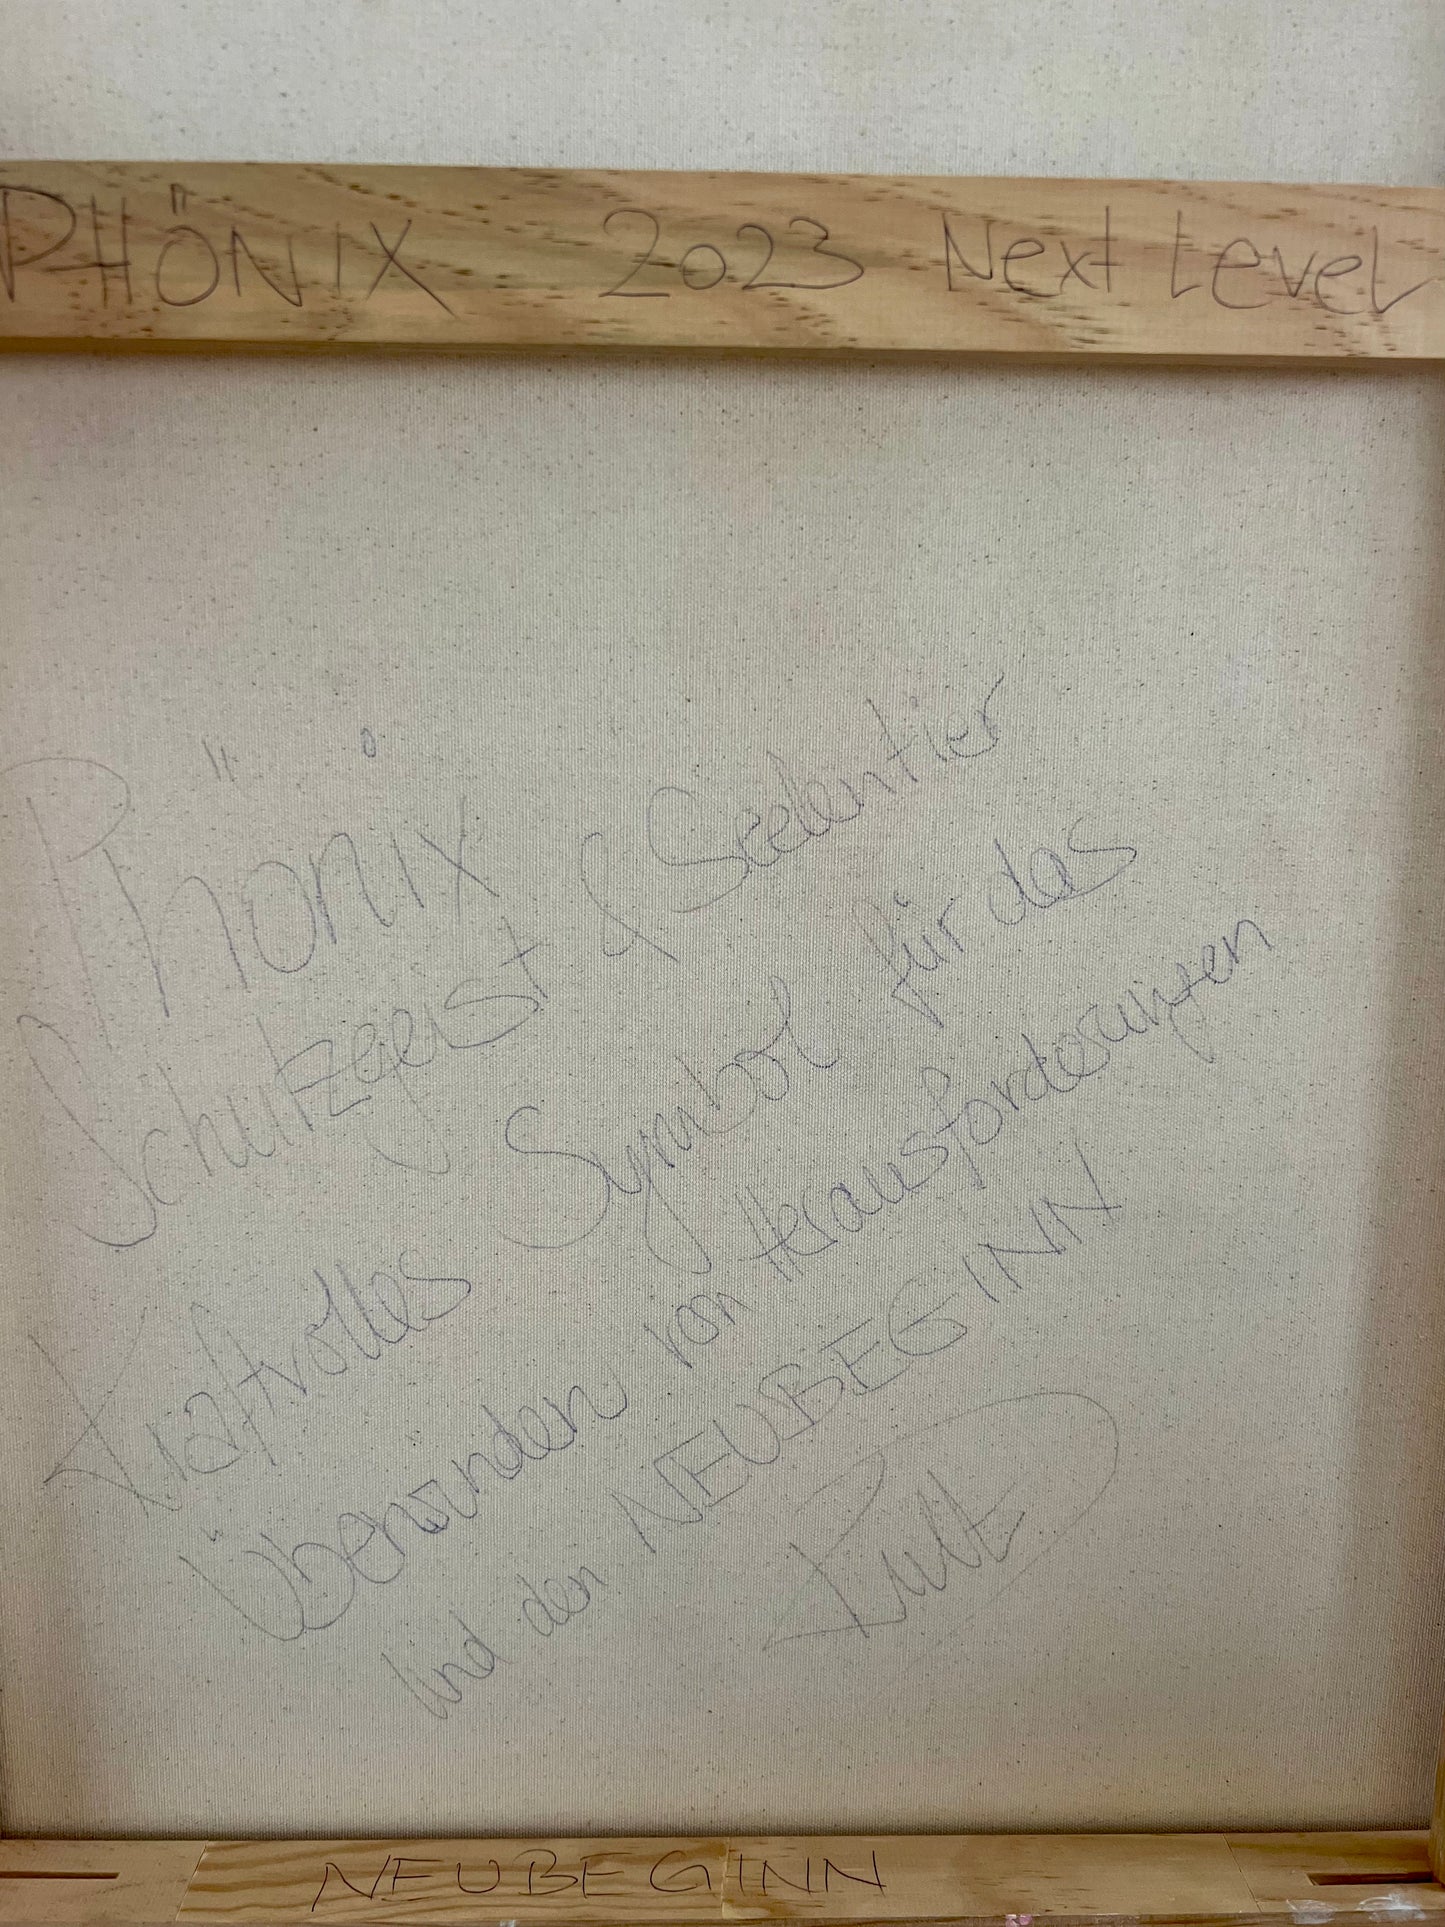 PHÖNIX 2023 Next Level
Phönix
Schutzgeist & Seelentier
Kraftvolles Symbol für das
Überwinden von Herausforderungen
und den NEUBEGINN
NEUBEGINN